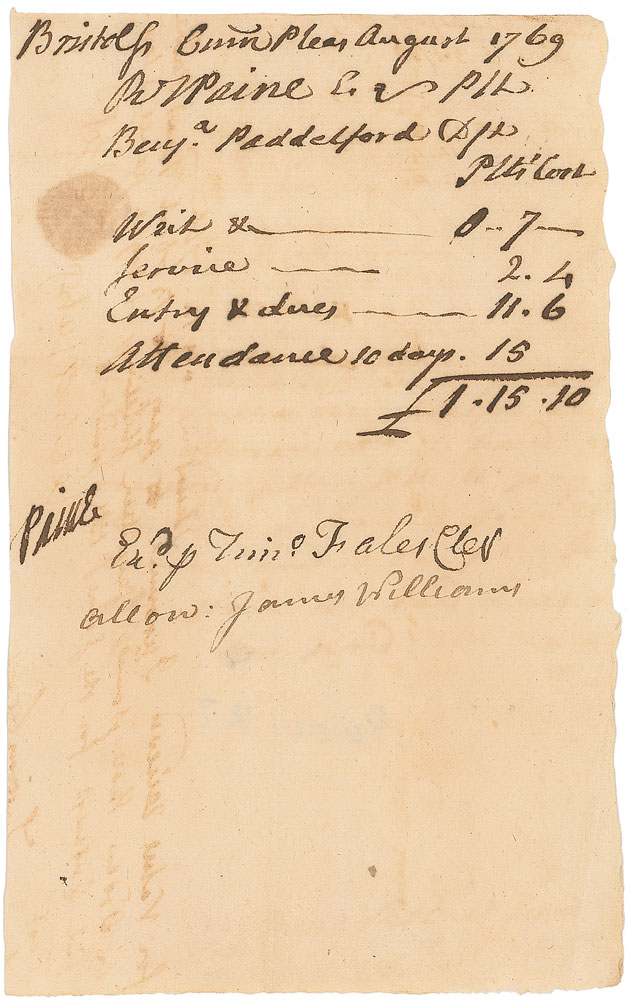 Bristol ss Com̅n Pleas August 1769
RTPaine Esqr Plt
Benjª Paddelford Dft
Plts Cost
Writ & 0..7
Service 2.4
Entry & dues 11.6
Attendance 10 days. 15
£1.15.10
PAINE
Exd p Timo Fales Cler
allow: James Williams